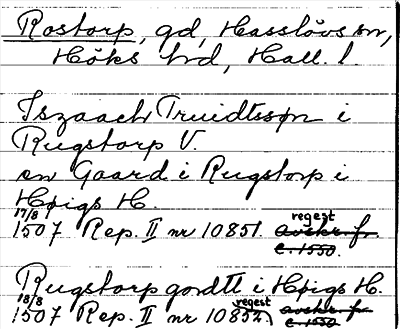 Rostorp, gd, Hasslövs sn,
Höks hd, Hall. l.
Iszaach Truidtssøn i
Rugstorp V.
en Gaard i Rugstorp i
Høigs H.
17/8 regest
1507 Rep. II nr 10851. avskr. fr.
c. 1550.
Rugstorp godtt i Høigs H.
18/8 regest
1507 Rep. II nr 10852. avskr. fr.
c. 1550.